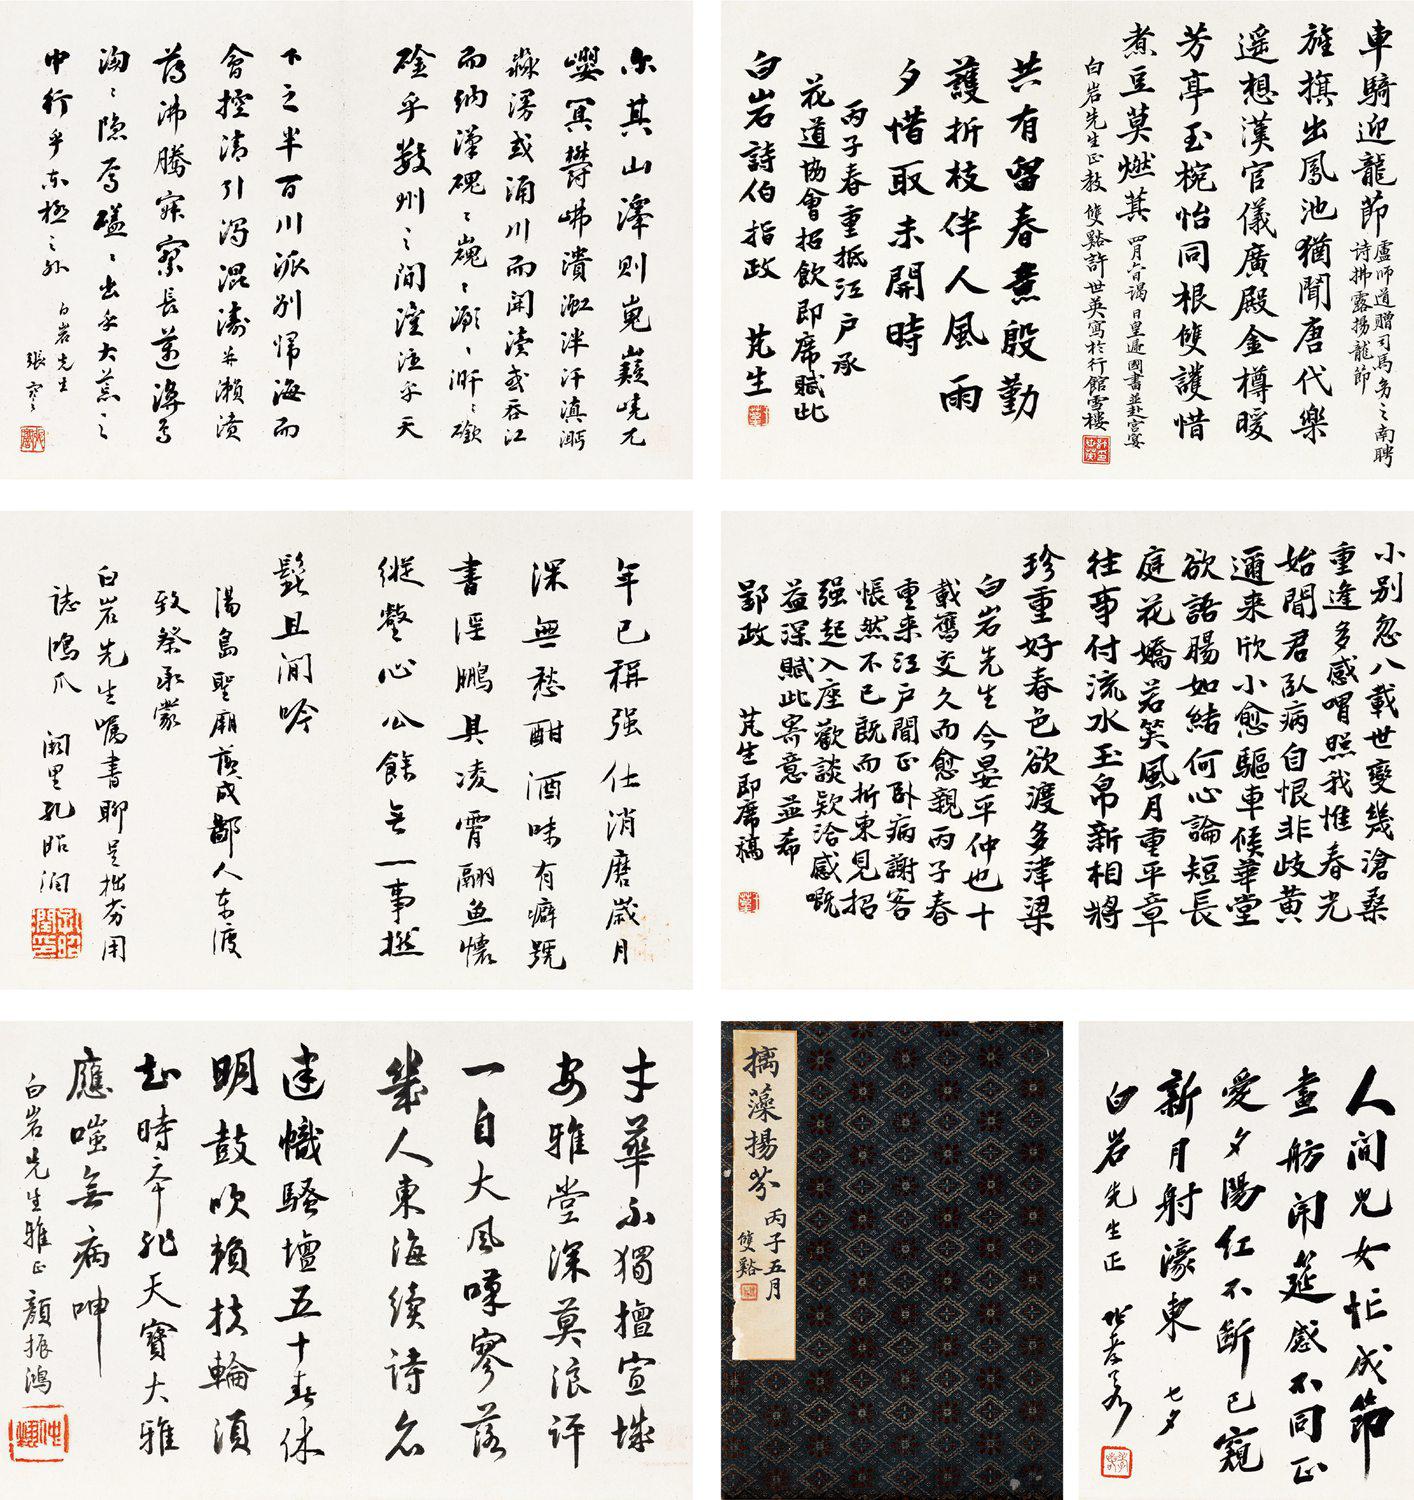 車騎迎龍節盧師道贈司馬幼之南聘
詩拂露揚龍節
旌旗出鳳池猶聞唐代樂
遥想漢官儀廣殿金樽暖
芳亭玉椀怡同根雙護惜
煮豆莫燃萁
四月六日謁日皇遞國書並赴宫宴
白岩先生正教 雙谿許世英寫於行館雪樓
共有留春意殷勤
護折枝伴人風雨
夕惜取未開時
丙子春重抵江户承
花道協會招飲即席賦此
白岩詩伯指政 芃生
尔其山澤則嵬嶷嶢兀
巊冥鬱岪潰渱泮汗滇㴐
淼漫或涌川而開瀆或吞江
而納漢磈磈嵬嵬㶁㶁涆涆
硿乎數州之間灌注乎天
下之半百川派别歸海而
會控清引濁混濤并瀨濆
薄沸騰寂寥長邁
洶洶隱焉礚礚出乎大荒之
中行乎東極之外
白岩先生
小别忽八載世變幾滄桑
重逢多感喟照我惟春光
始聞君卧病自恨非歧黄
邇來欣小愈驅車候華堂
欲語腸如結何心論短長
庭花嬌若笑風月重平章
往事付流水玉帛新相將
珍重好春色欲渡多津梁
白岩先生今晏平仲也十
載舊交久而愈親丙子春
重來江户聞正卧病謝客
悵然不已既而折柬見招
强起入座歡談欵洽感嘅
益深賦此寄意並希
鄂政 芃生即席稿
年已稱强仕消磨歲月
深無愁酣酒味有癖號
書淫鵬具凌霄翮魚懷
縱壑心公餘無一事撚
髭且閒吟
湯島聖廟落成鄙人東渡
致祭承蒙
白岩先生囑書聊呈拙夯用
誌鴻爪 闕里孔昭潤
才華不獨擅宣城
安雅堂深莫浪評
一自大風嘆寥落
幾人東海續詩名
建幟騷壇五十春休
明鼓吹賴扶輪須
知時本非天寶大雅
應嗤無病呻
白岩先生雅正 顔振鴻
摛藻揚芬 丙子五月
雙谿
人間兒女忙成節
畫舫開筵感不同正
愛夕陽红不斷已窺
新月射濠東 七夕
白岩先生正